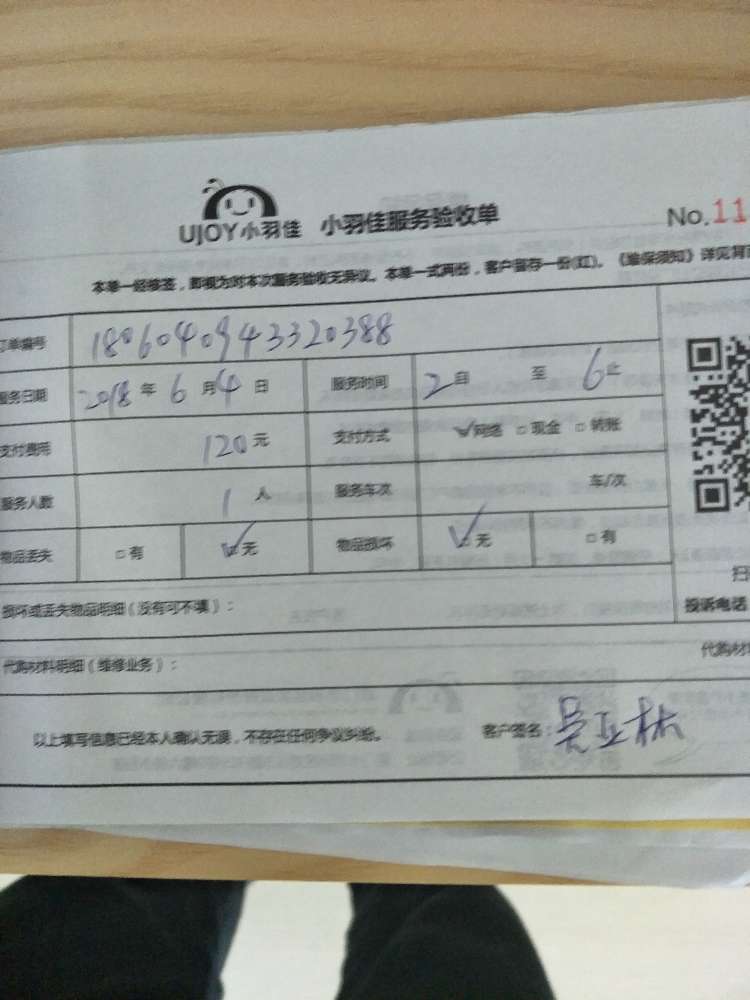 UJOY小羽佳 小羽佳服务验收单 No.11
本单一经接签，即视为对本次服务验收无异议。本单一式两份，客户留存一份(红)。《维保须知》详见背
订单编号 1806040943320388
服务日期 2018年6月4日 服务时间 2自 至 6止
支付费用 120元 支付方式 ☑网络 □现金 □转账
服务人数 1人 服务车次 车/次
物品丢失 □有 ☑无 物品损坏 ☑无 □有
扫
损坏或丢失物品明细（没有可不填）： 投诉电话
代购材料明细（维修业务）： 代购材
以上填写信息已经本人确认无误，不存在任何争议纠纷。 客户签名：吴亚林